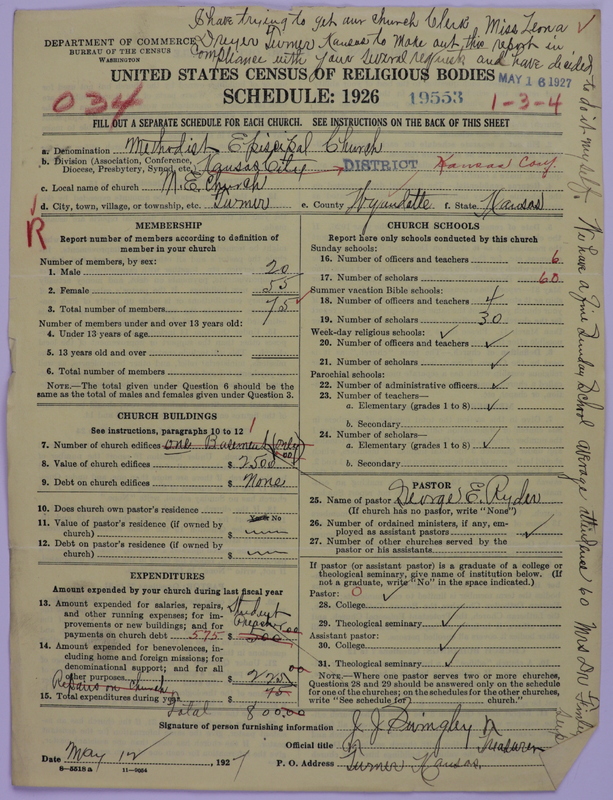 I have trying to get our church Clerk, Miss Leona ✓
Dreyer Turner Kansas to make out this report in
compliance with your several request and have decided
to do it myself. We have a fine Sunday School average attendance 60 Mrs DW Finley Supt
DEPARTMENT OF COMMERCE
BUREAU OF THE CENSUS
WASHINGTON
UNITED STATES CENSUS OF RELIGIOUS BODIES MAY 16 1927
034 SCHEDULE: 1926 19553 1-3-4
FILL OUT A SEPARATE SCHEDULE FOR EACH CHURCH. SEE INSTRUCTIONS ON THE BACK OF THIS SHEET
a. Denomination Methodist Episcipal Church
b. Division (Association, Conference, Diocese, Presbytery, Synod, etc.) Kansas City DISTRICT Kansas Conf
c. Local name of church M. E. Church
d. City, town, village, or township, etc. Turner e. County Wyandotte f. State Kansas
R
MEMBERSHIP
Report number of members according to definition of
member in your church
Number of members, by sex:
1. Male 20
2. Female 55
3. Total number of members 75 ✓
Number of members under and over 13 years old:
4. Under 13 years of age
5. 13 years old and over
6. Total number of members
NOTE.—The total given under Question 6 should be the
same as the total of males and females given under Question 3.
CHURCH BUILDINGS
See instructions, paragraphs 10 to 12
7. Number of church edifices one Basement (only) 1
8. Value of church edifices $ 2500 00
9. Debt on church edifices $ None
10. Does church own pastor's residence? Yes or No
11. Value of pastor's residence (if owned by
church) $
12. Debt on pastor's residence (if owned by
church) $
EXPENDITURES
Amount expended by church during last fiscal year
13. Amount expended for salaries, repairs,
and other running expenses; for im-
provements or new buildings; and for
payments on church debt 575 $ Student 500.00
14. Amount expended for benevolences, in-
cluding home and foreign missions; for
denominational support; and for all
other purposes $ 225 00
Repairs on Church 75
15. Total expenditures during year
Total 800.00
CHURCH SCHOOLS
Report here only schools conducted by this church
Sunday schools:
16. Number of officers and teachers 6
17. Number of scholars 60
Summer vacation Bible schools:
18. Number of officers and teachers 4
19. Number of scholars 30
Week-day religious schools: ✓
20. Number of officers and teachers ✓
21. Number of scholars ✓
Parochial schools:
22. Number of administrative officers ✓
23. Number of teachers—
a. Elementary (grades 1 to 8) ✓
b. Secondary
24. Number of scholars—
a. Elementary (grades 1 to 8) ✓
b. Secondary
PASTOR
25. Name of pastor George E. Ryder
(If church has no pastor, write "None")
26. Number of ordained ministers, if any, em-
ployed as assistant pastors ✓
27. Number of other churches served by the
pastor or his assistants
If pastor (or assistant pastor) is a graduate of a college or
theological seminary, give name of institution below. (If
not a graduate, write "No" in the space indicated.)
Pastor: 0 ✓
28. College
29. Theological seminary ✓
Assistant pastor:
30. College ✓
31. Theological seminary ✓
NOTE.—Where one pastor serves two or more churches,
Questions 28 and 29 should be answered only on the schedule
for one of the churches; on the schedules for the other churches,
write "See schedule for church."
Signature of person furnishing information J. J. Swingley
Official title Treasurer
Date May 12, 1927 P. O. Address Turner Kansas.
8-5518a 11-9054